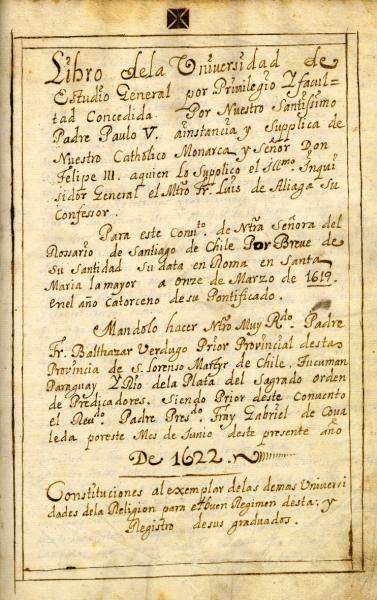 Libro dela Universidad de
Estudio General por Privilegio Y facul=
tad Concedida Por Nuestro Santissimo
Padre Paulo V. ainstancia y Supplica de
Nuestro Catholico Monarca y Señor Don
Felipe III. aquien Lo Supplico el Illmo. Inqui
sidor General el Mtro. Fr. Luis de Aliaga Su
Confesor.
Para este Convto. de Ntra Señora del
Rosario de Santiago de Chile Por Breve de
Su Santidad Su data en Roma en Santa
Maria la mayor a onze de Marzo de 1619.
enel año Catorceno de su Pontificado.
Mandolo hacer Ntro Muy Rdo. Padre
Fr. Balthazar Verdugo Prior Provincial desta
Provincia de S. Lorenso Martyr de Chile, Tucuman
Paraguay Y Rio de la Plata del Sagrado orden
de Predicadores. Siendo Prior deste Convento
el Revdo. Padre Presdo. Fray Gabriel de Cova
leda poreste Mes de Junio deste presente año
De 1622.
Constituciones al exemplar delas demas Universi
dades dela Religion para el buen Regimen desta: y
Registro desus graduados.